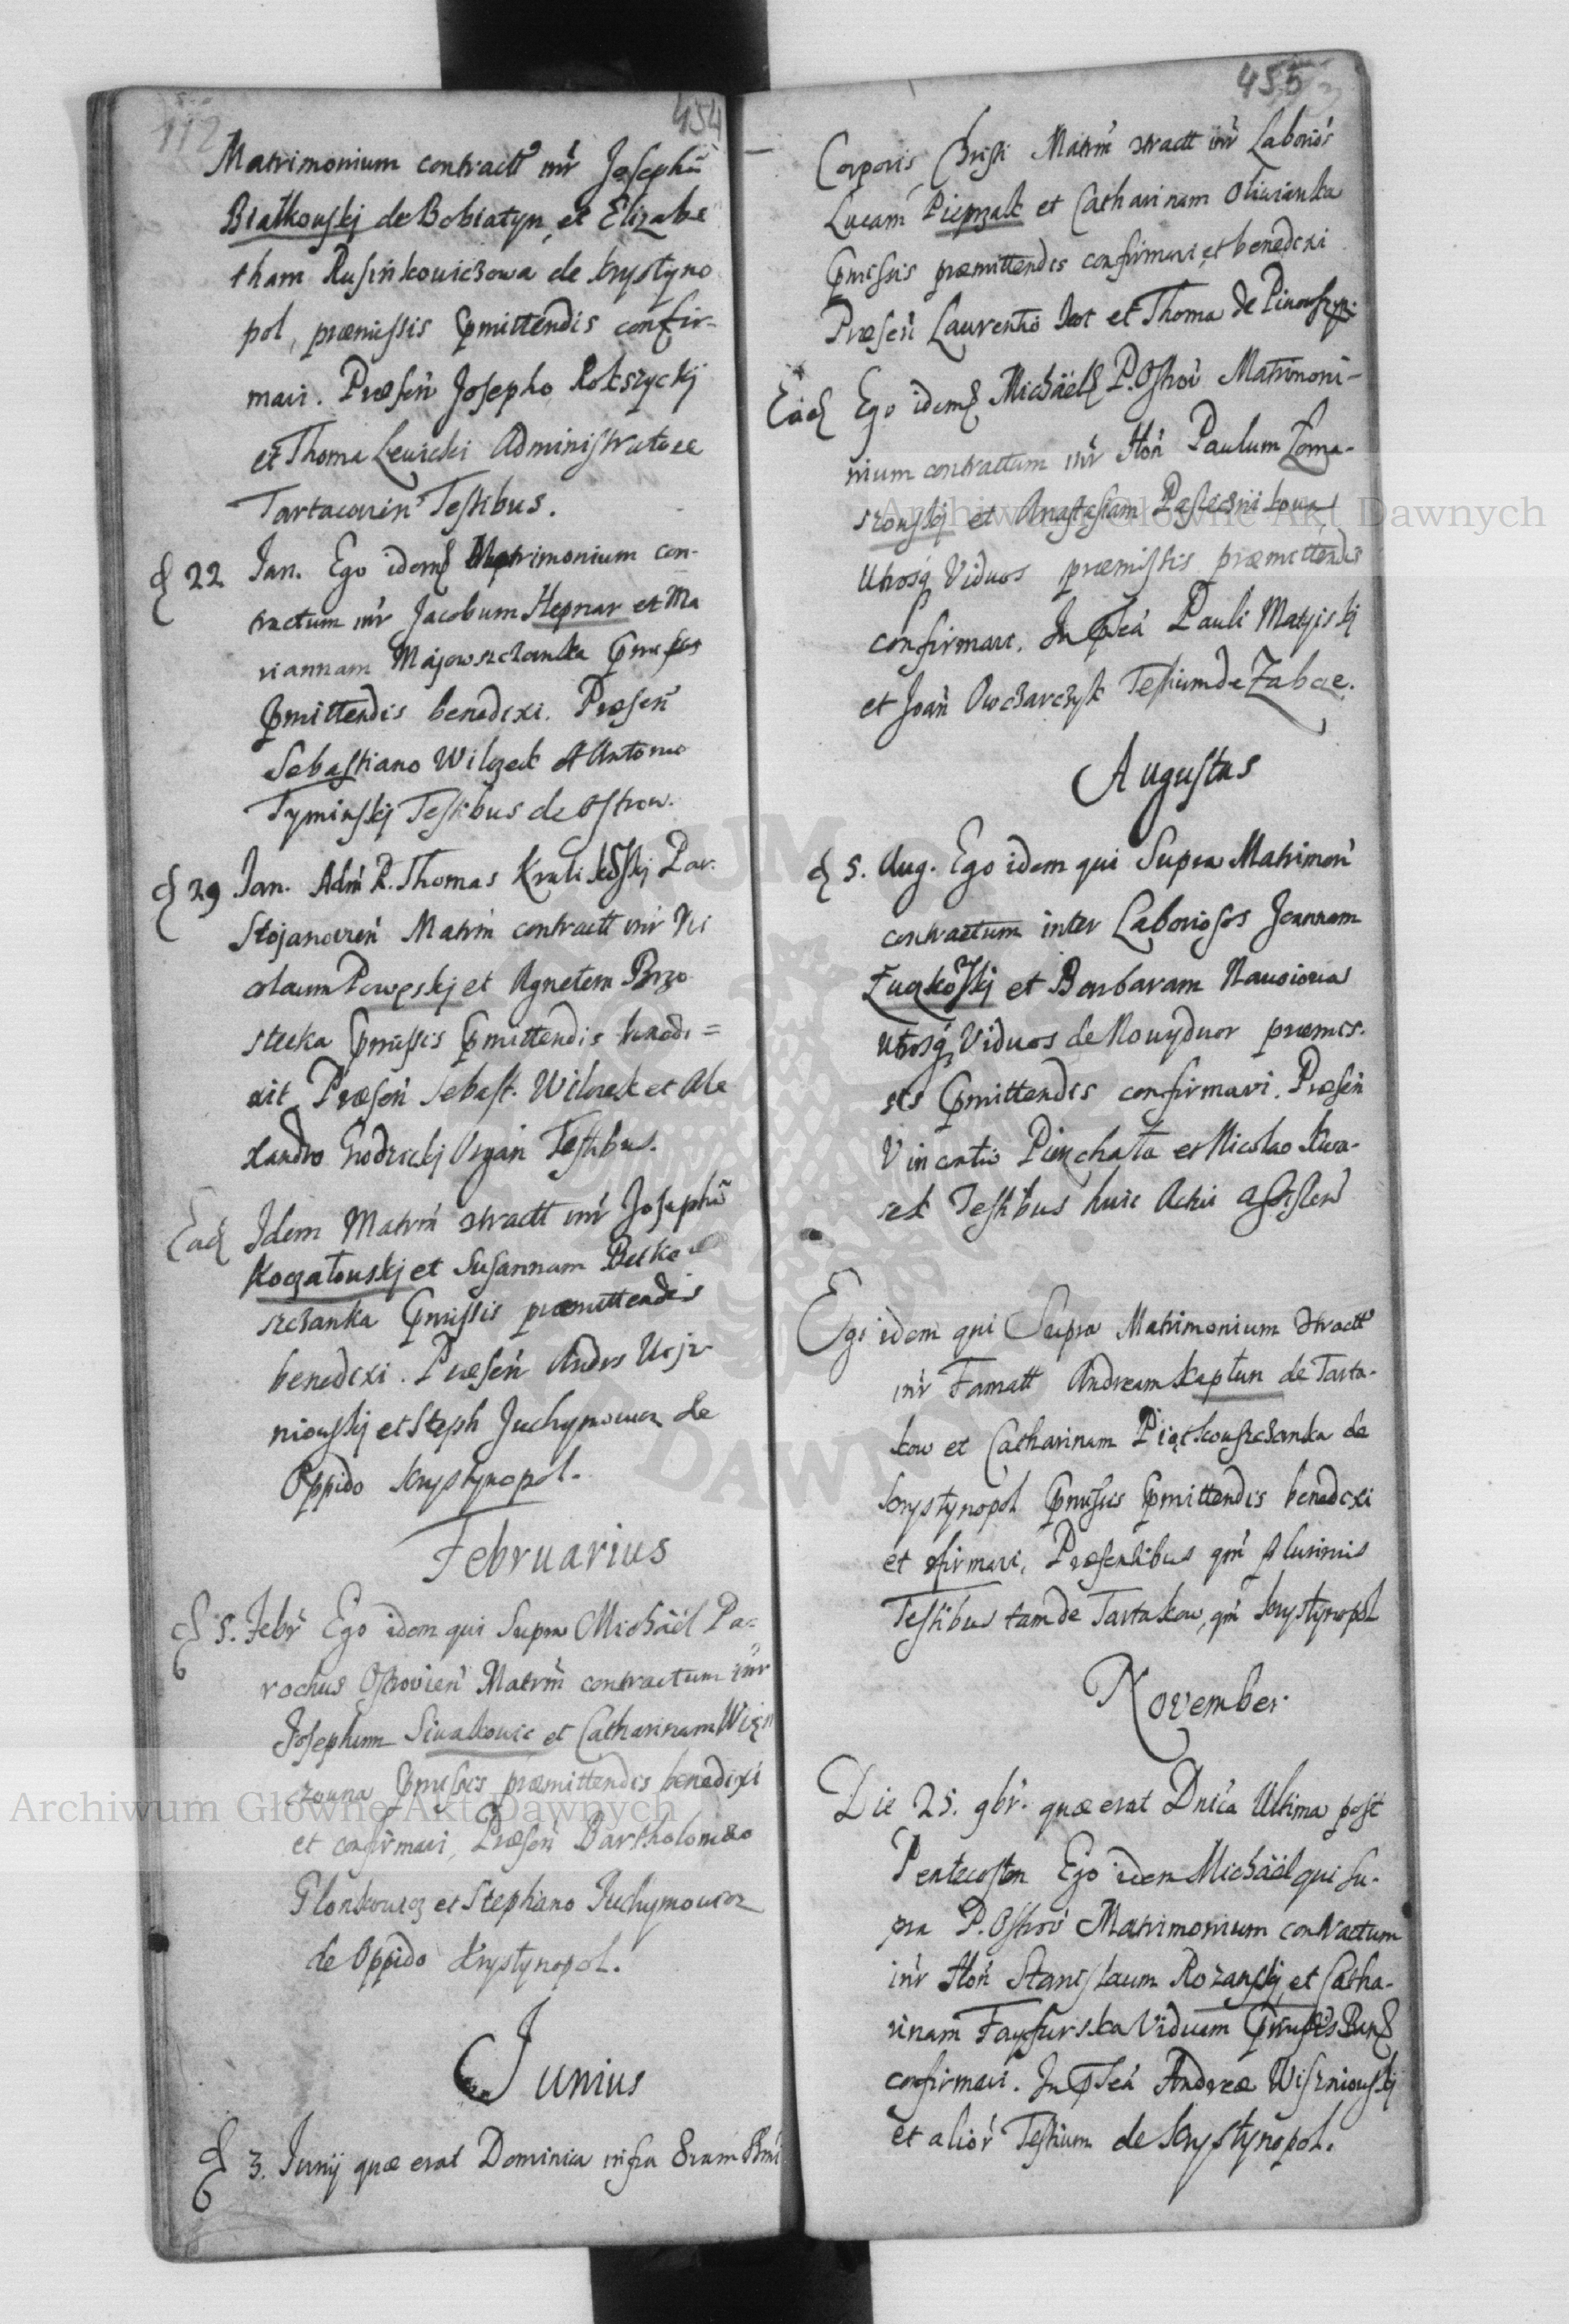 112
454
Matrimonium contractt inr Josephū
Białkowskj de Bobiatyn, et Elizabe
tham Rusinkowiczowa de Krystyno
pol, præmissis pmittendis confir-
mavi. Præsen Josepho Rokszyckj
et Thoma Lewicki Administratore
Tartacovien Testibus.
d 22 Jan. Ego idemq Matrimonium con-
tractum inr Jacobum Hepnar et Ma
riannam Majewszczanka pmissis
pmittendis benedixi. Præsen
Sebastiano Wilczek et Antonio
Tyminskj Testibus de Ostrow.
d 29 Jan. Adm R. Thomas Par.
Stojanovien Matrm contractt inr Ni
olaum Powęskj et Agnetem Brzo
stecka pmissis pmittendis benedi=
xit Præsen Sebast. Wilczek et Ale
xandro Grodzickj Organ Testibus.
Ead Idem Matrm ntractt inr Josephū
Koczałowskj et Susannam Betke
szczanka pmissis præmittendis
benedixi. Præsen Andr
niowskj et Steph Juchymowicz de
Oppido Krystynopol.
Februarius
d 5. Febr Ego idem qui Supra Michäel Pa-
rochus Ostrovien Matrm contractum inr
Josephum Siwakowic et Catharinam Więn
czowna pmissis præmittendis benedixi
et confirmavi, Præsen Bartholomæo
Glonkowicz et Stephano Juchymowicz
de Oppido Krystynopol.
Junius
d 3. Junij quæ erat Dominica infra 8vam SSmi
455
Corporis Christi Matrm ntractt inr Laborios
Lucam Piepszak et Catharinam Oliwianka
pmissis præmittendis confirmavi et benedixi
Præsen Laurentio et Thoma de
Ead Ego idemq Michäelq P. Ostrov Matrimoni-
nium contractum inr Hon Paulum Loma-
szowskj et Anastasiam Pasiecznikowa
Utrosq Viduos præmissis præmittendis
confirmavi. In pseā Pauli Matyiskj
et Joan Owczarczyk Testium de Zabcze.
Augustus
d 5. Aug. Ego idem qui Supra Matrimon
contractum inter Laboriosos Joannem
Łuczkowskj et Barbaram
Utrosq Viduos de Nowydwor præmis.
sis pmittendis confirmavi. Præsen
Vincentio Piechata et Nicolao Kwa-
sek Testibus huic Actui assisten
Ego idem qui Supra Matrimonium ntractt
inr Famatt Andream Kapłun de Tarta-
kow et Catharinam Piątkowszczanka de
Krystynopol pmissis pmittendis benedixi
et nfirmavi, Præsentibus qm plurimis
Testibus tam de Tartakow, qm Krystynopol
November
Die 25. 9br. quæ erat Dnica Ultima post
Pentecosten Ego idem Michäel qui su-
pra P. Ostrov Matrimonium contractum
inr Hon Stanislaum Rozanskj et Catha-
rinam Fayfurska Viduam pmissis Banq
confirmavi. In pseā Andreæ Wiszniowskj
et alior Testium de Krystynopol.
Archiwum Główne Akt Dawnych
Archiwum Główne Akt Dawnych